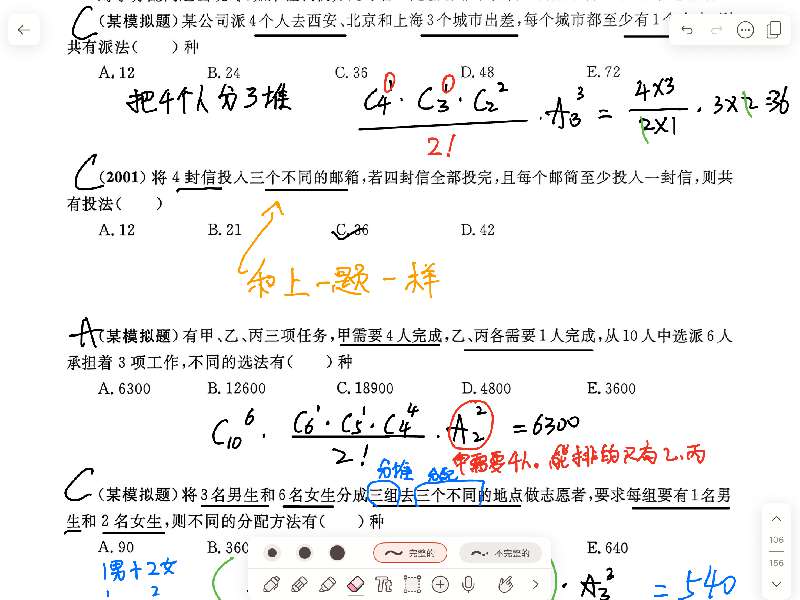 C(某模拟题)某公司派4个人去西安、北京和上海3个城市出差,每个城市都至少有1个
共有派法( )种
A. 12 B. 24 C. 36 D. 48 E. 72
把4个人分3堆 C₄¹·C₃¹·C₂² / 2! ·A₃³ = 4×3 / 2×1 · 3×2 = 36
C(2001)将4封信投入三个不同的邮箱,若四封信全部投完,且每个邮筒至少投入一封信,则共
有投法( )
A. 12 B. 21 C. 36 D. 42
和上一题一样
A(某模拟题)有甲、乙、丙三项任务,甲需要4人完成,乙、丙各需要1人完成,从10人中选派6人
承担着3项工作,不同的选法有( )种
A. 6300 B. 12600 C. 18900 D. 4800 E. 3600
C₁₀⁶ · C₆¹·C₅¹·C₄⁴ / 2! ·A₂² = 6300
甲需要4人。能排的只有乙、丙
分堆 分配
C(某模拟题)将3名男生和6名女生分成三组去三个不同的地点做志愿者,要求每组要有1名男
生和2名女生,则不同的分配方法有( )种
A. 90 B. 360 E. 640
1男+2女 · A₃³ = 540
完整的 不完整的
106
156